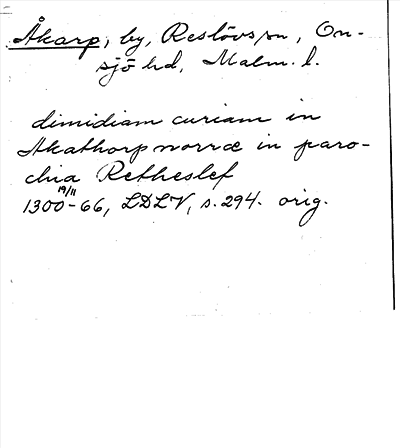 Åkarp, by, Reslövs sn, On-
sjö hd, Malm. l.
dimidiam curiam in
Akathorp norræ in paro-
chia Retheslef
19/11
1300-66, LDLV, s. 294. orig.